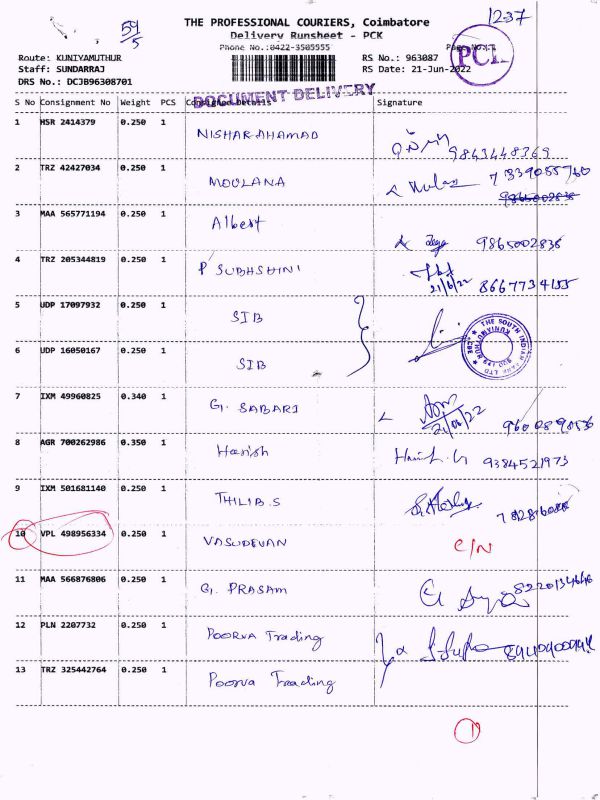 1237
59/5
THE PROFESSIONAL COURIERS, Coimbatore
Delivery Runsheet - PCK
Phone No.:0422-3505555
Route: KUNIYAMUTHUR
RS No.: 963087
PCK
Staff: SUNDARRAJ
RS Date: 21-Jun-2022
DRS No.: DCJB96308701
DOCUMENT DELIVERY
S No Consignment No Weight PCS Consigned Details Signature
1 HSR 2414379 0.250 1 NISHAR AHAMAD 9843448369
2 TRZ 42427034 0.250 1 MOULANA 7339055760
9865002836
3 MAA 565771194 0.250 1 Albert 9865002836
4 TRZ 205344819 0.250 1 P SUBHSHINI 21/6/22 8667734155
5 UDP 17097932 0.250 1 SIB
THE SOUTH INDIAN BANK LTD KUNIAMUTHUR
6 UDP 16050167 0.250 1 SIB
7 IXM 49960825 0.340 1 G. SABARI 21/06/22
8 AGR 700262986 0.350 1 Harish Harish.G 9384521973
9 IXM 501681140 0.250 1 THILIB.S
10 VPL 498956334 0.250 1 VASUDEVAN C/N
11 MAA 566876806 0.250 1 G. PRASAM
12 PLN 2207732 0.250 1 POORVA Trading
13 TRZ 325442764 0.250 1 Poorva Trading
1